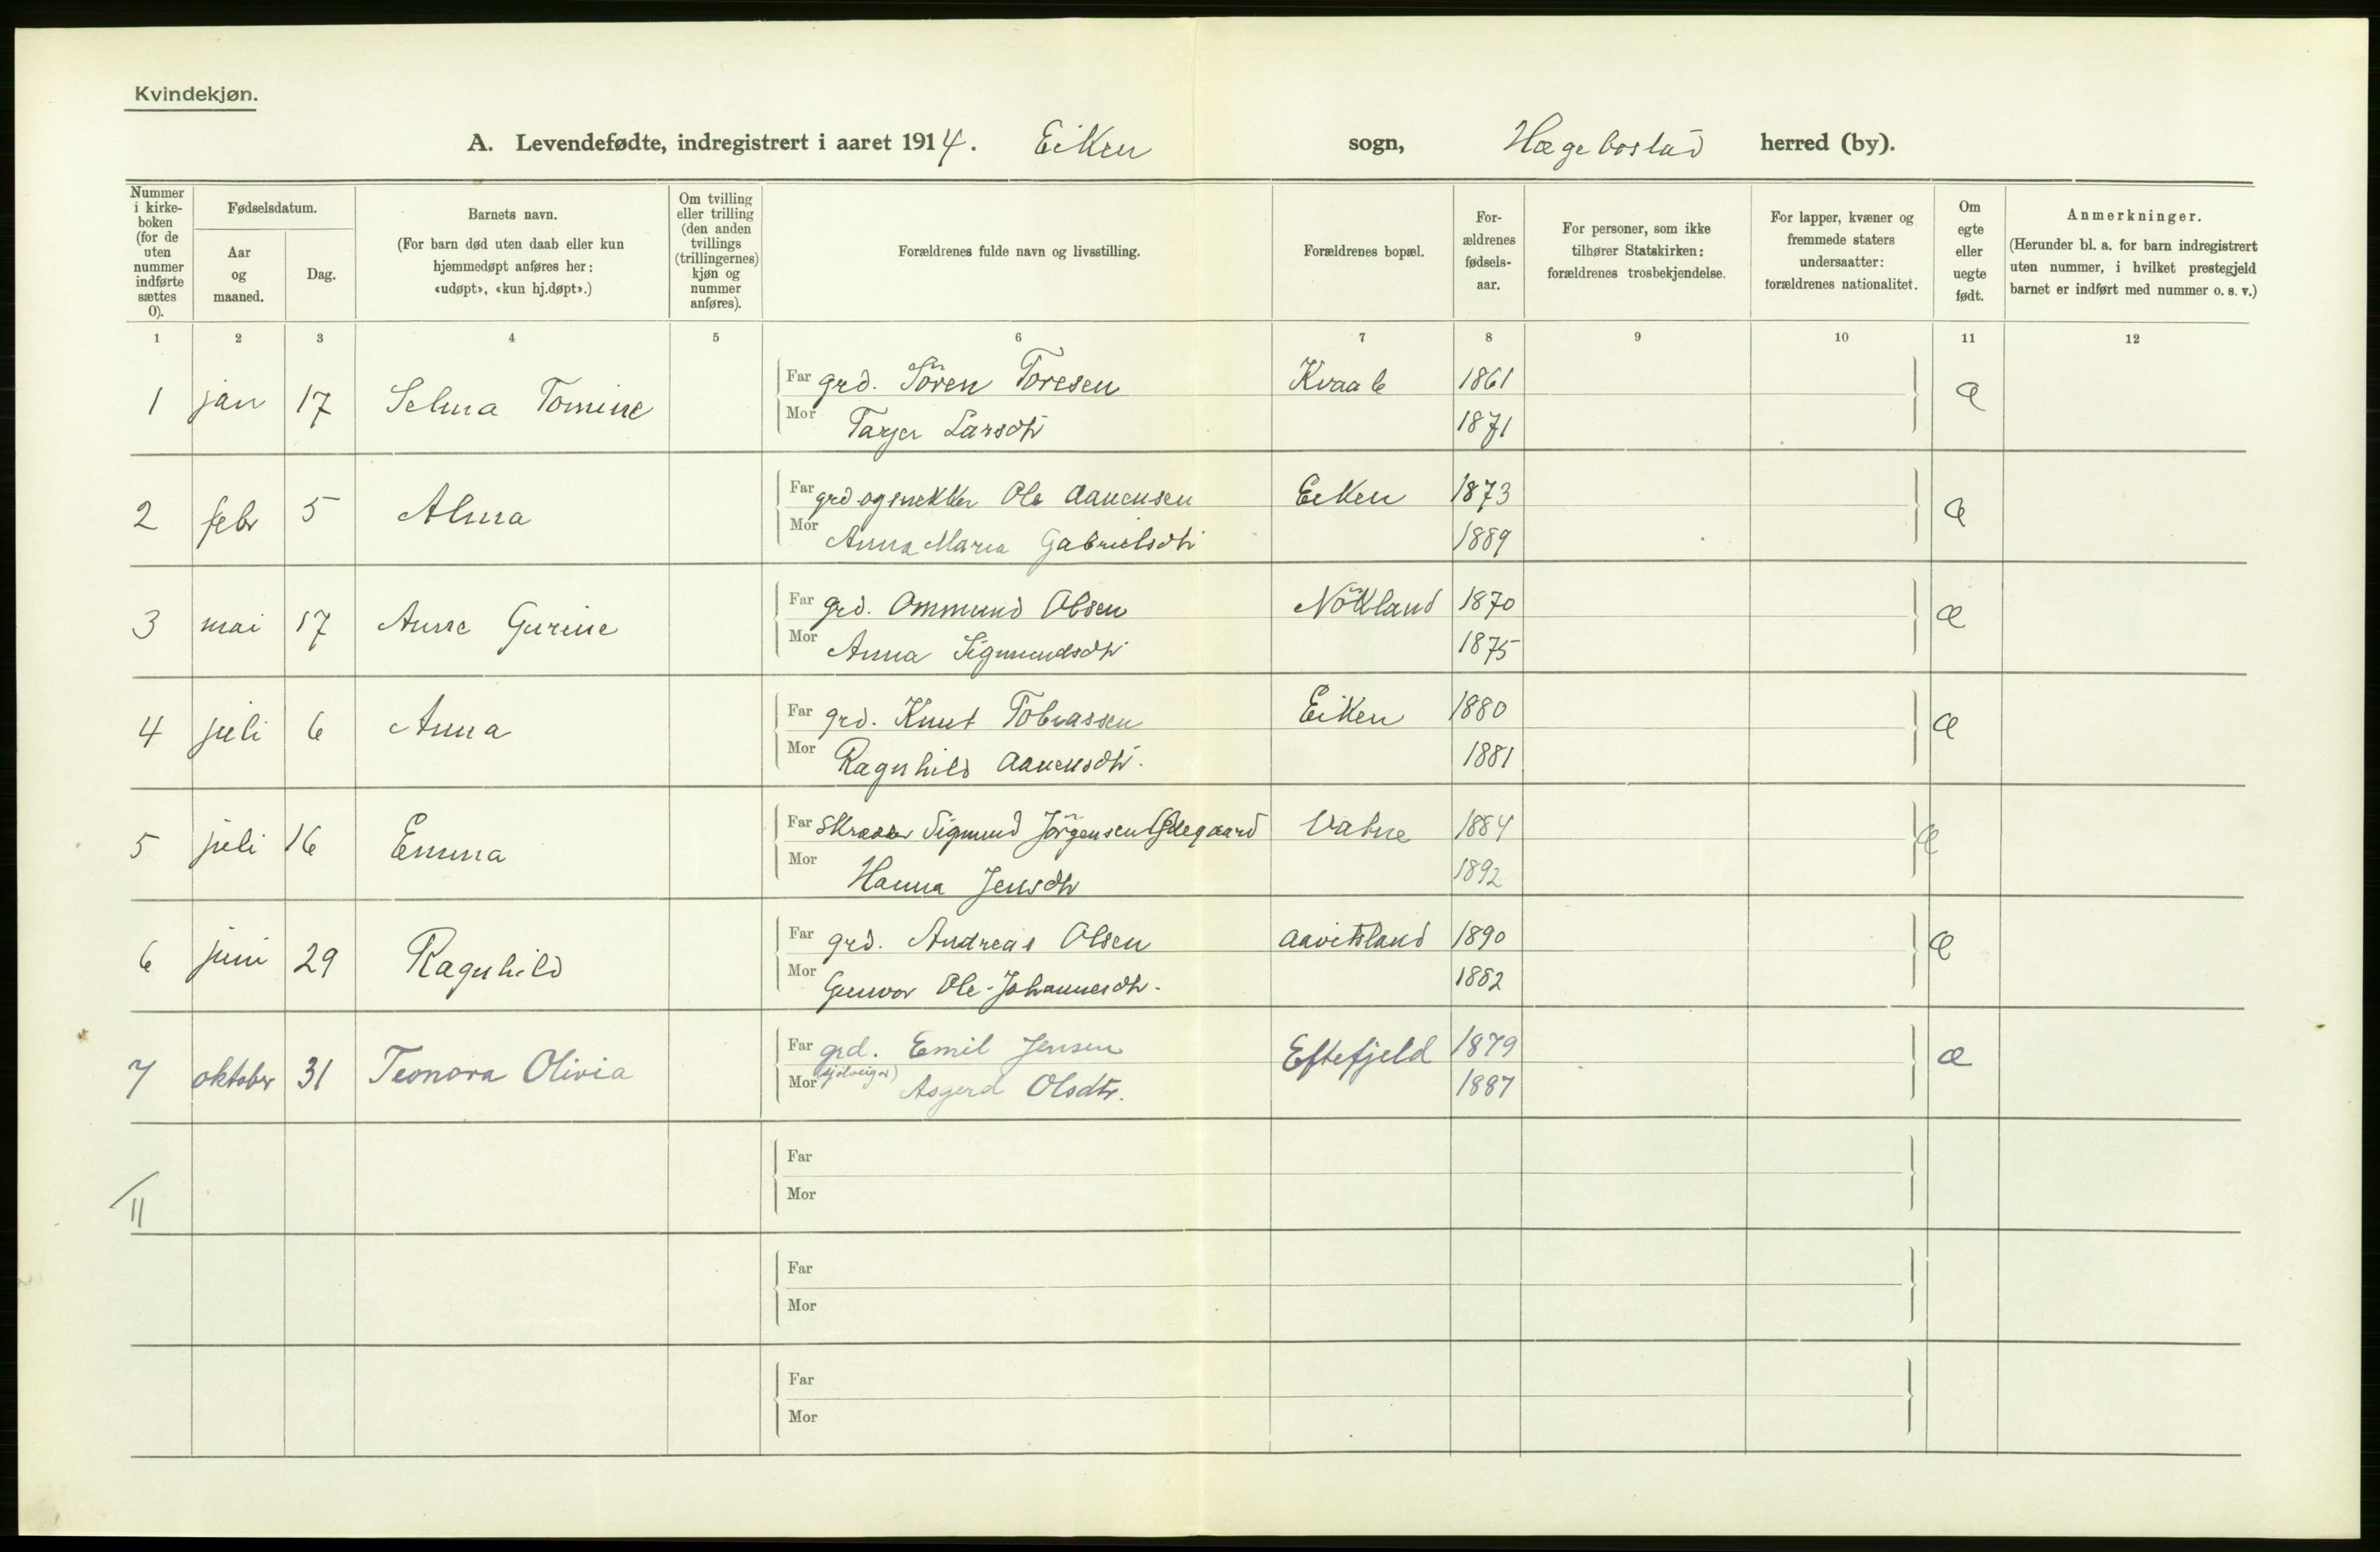 Kvindekjøn.
A. Levendefødte, indregistrert i aaret 1914. Eiken sogn, Hægebostad herred (by).
Nummer i kirke- boken (for de uten nummer indførte sættes 0).
Fødselsdatum.
Aar og maaned.
Dag.
Barnets navn.
(For barn død uten daab eller kun hjemmedøpt anføres her: «udøpt», «kun hj.døpt».)
Om tvilling eller trilling (den anden tvillings (trillingernes) kjøn og nummer anføres).
Forældrenes fulde navn og livsstilling.
Forældrenes bopæl.
For- ældrenes fødsels- aar.
For personer, som ikke tilhører Statskirken: forældrenes trosbekjendelse.
For lapper, kvæner og fremmede staters undersaatter: forældrenes nationalitet.
Om egte eller uegte født.
Anmerkninger.
(Herunder bl. a. for barn indregistrert uten nummer, i hvilket prestegjeld barnet er indført med nummer o. s. v.)
1 2 3 4 5 6 7 8 9 10 11 12
1 jan 17 Selma Tomine Far grd. Sören Toresen Kvaale 1861 Æ
Mor Tarjer Larsdtr 1871
2 febr 5 Alma Far grd og snekker Ole Aanensen Eiken 1873 Æ
Mor Anna Maria Gabrielsdtr 1889
3 mai 17 Anne Gurine Far grd. Ommund Olsen Nökland 1870 Æ
Mor Anna Sigmundsdtr 1875
4 juli 6 Anna Far grd. Knut Tobiassen Eiken 1880 Æ
Mor Ragnhild Aanensdtr. 1881
5 juli 16 Emma Far Skræder Sigmund Jörgensen Ödegaard Vatne 1884 Æ
Mor Hanna Jensdtr 1892
6 juni 29 Ragnhild Far grd. Andreas Olsen Aavitsland 1890 Æ
Mor Gunvor Ole-Johannesdtr. 1882
7 oktober 31 Teonora Olivia Far grd. Emil Jensen Eftefjeld 1879 æ
Mor (sjølveigar) Asgerd Olsdtr. 1887
Far
Mor
II
Far
Mor
Far
Mor